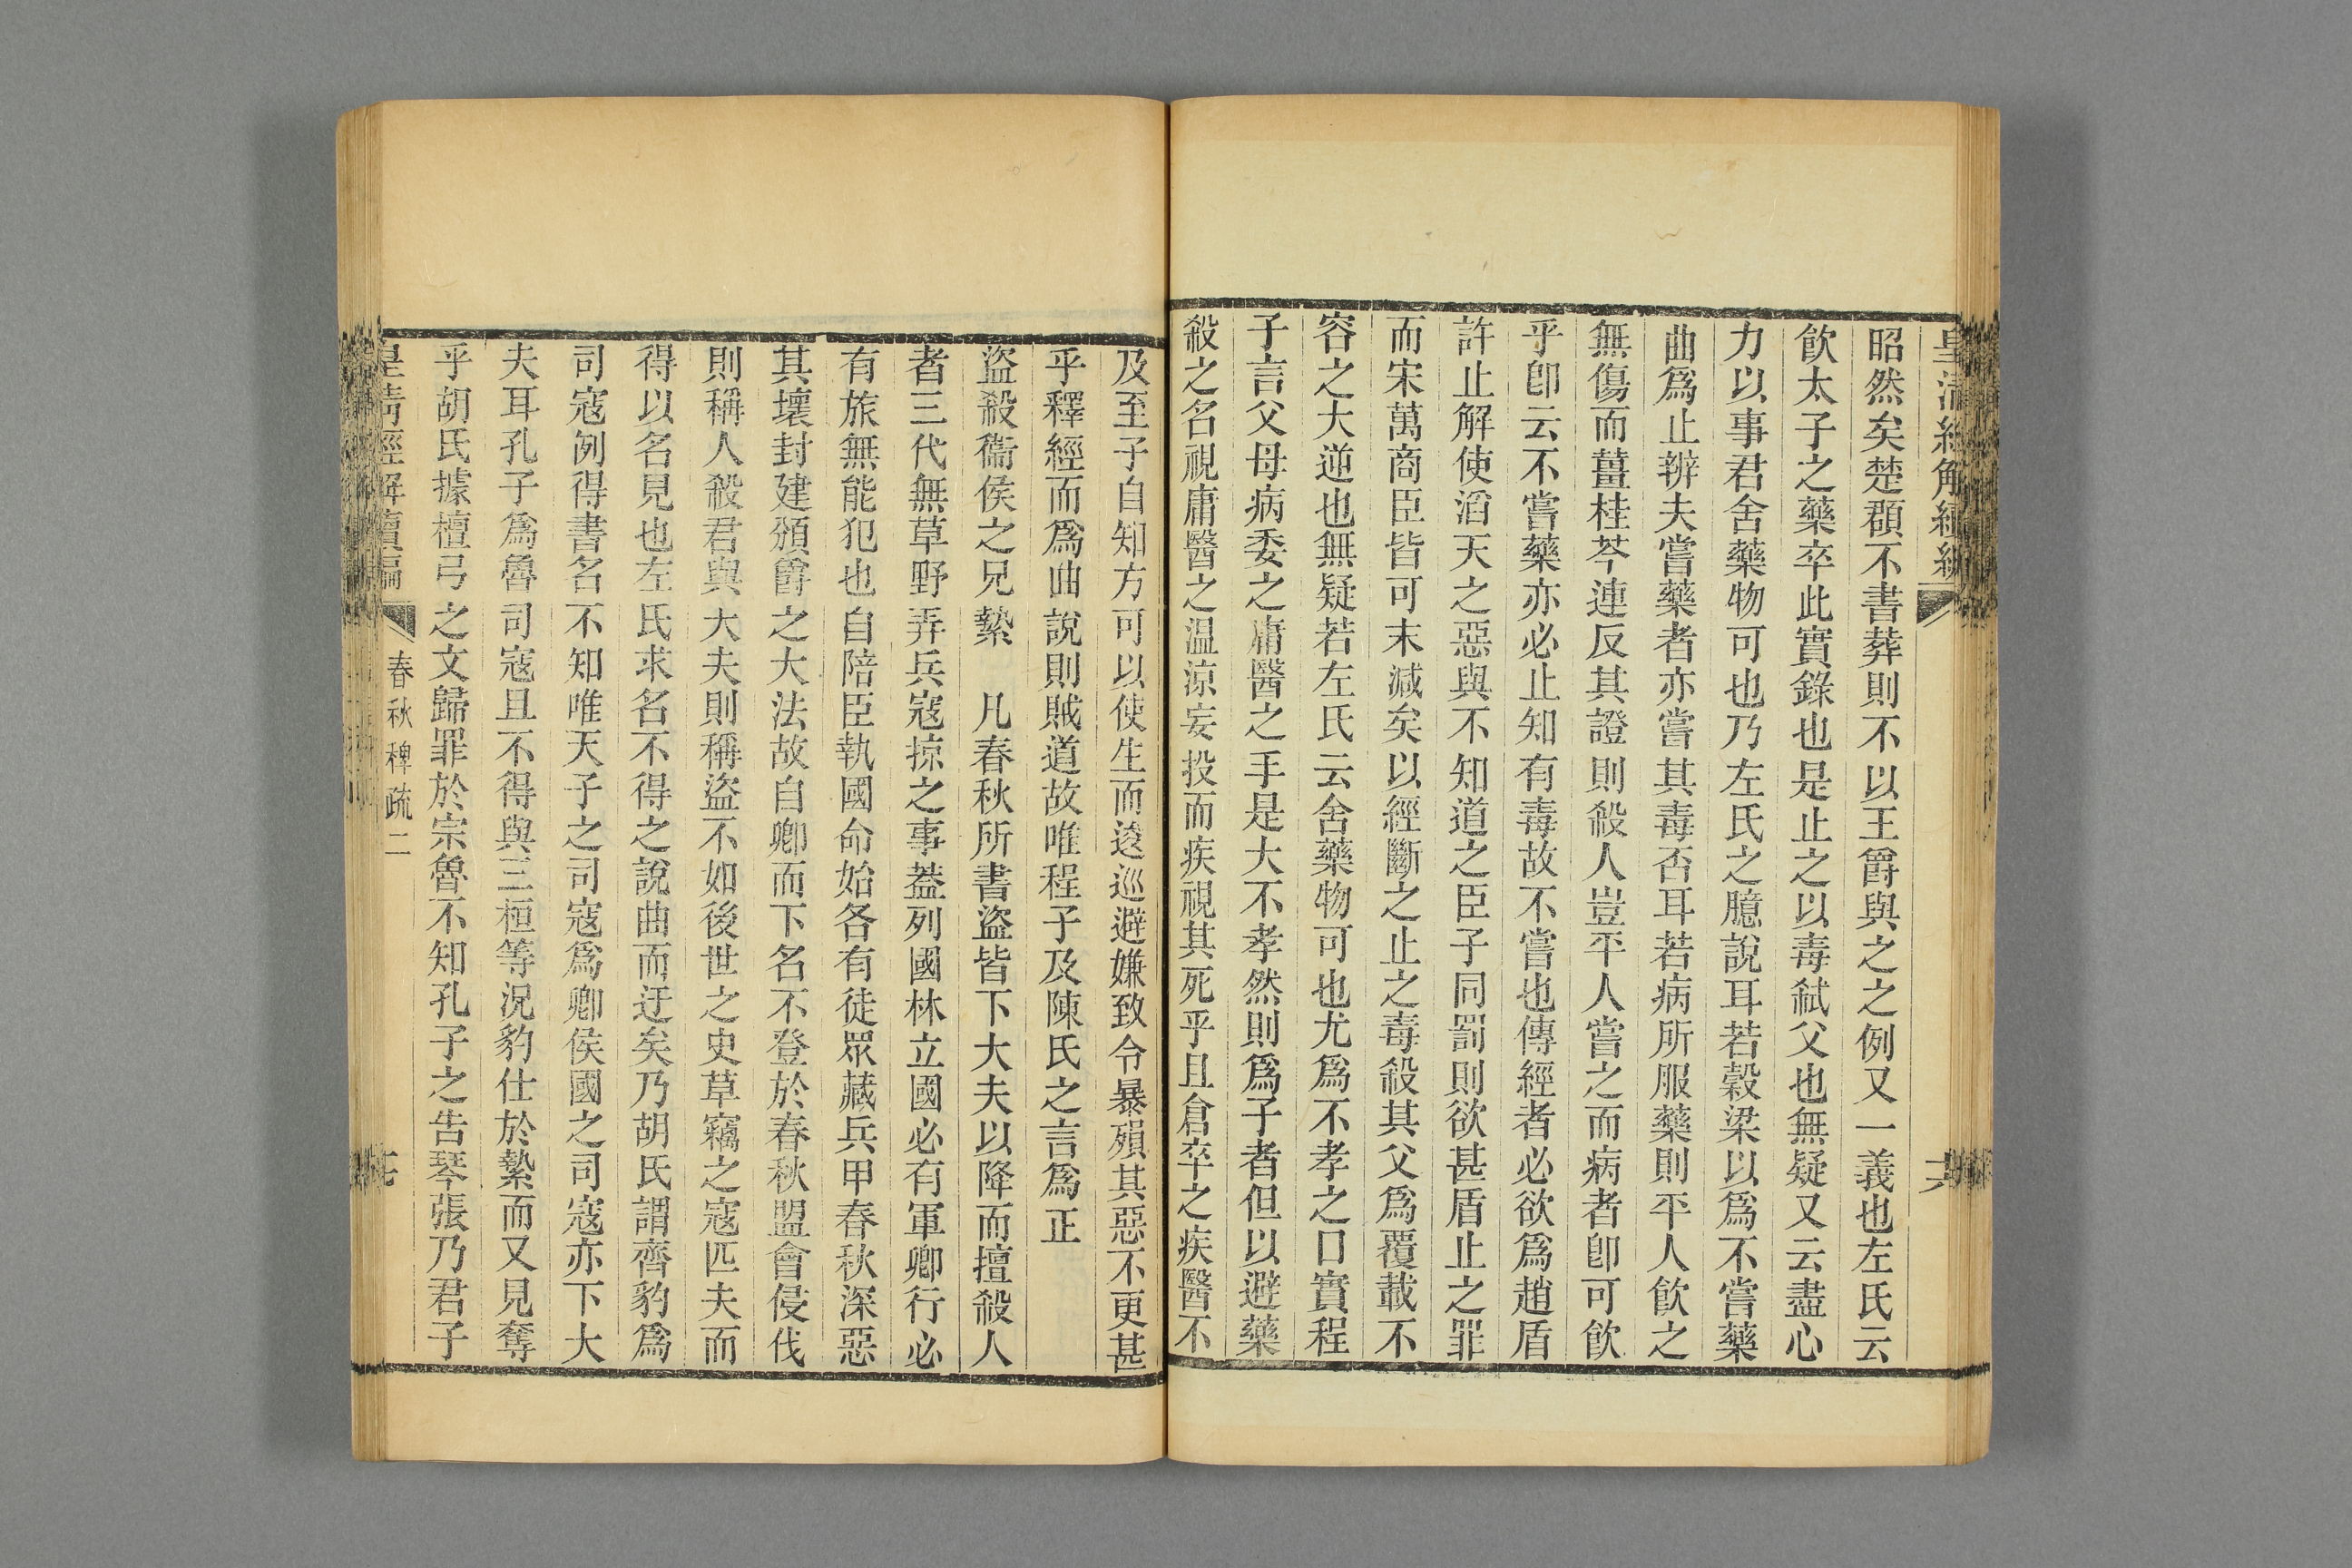 皇清經解續編
六
昭然矣楚頵不書葬則不以王爵與之之例又一義也左氏云
飮太子之藥卒此實錄也是止之以毒弑父也無疑又云盡心
力以事君舍藥物可也乃左氏之臆說耳若穀梁以爲不嘗藥
曲爲止辨夫嘗藥者亦嘗其毒否耳若病所服藥則平人飮之
無傷而薑桂芩連反其證則殺人豈平人嘗之而病者卽可飮
乎卽云不嘗藥亦必止知有毒故不嘗也傳經者必欲爲趙盾
許止解使滔天之惡與不知道之臣子同罰則欲甚盾止之罪
而宋萬商臣皆可末減矣以經斷之止之毒殺其父爲覆載不
容之大逆也無疑若左氏云舍藥物可也尤爲不孝之口實程
子言父母病委之庸醫之手是大不孝然則爲子者但以避藥
殺之名視庸醫之溫涼妄投而疾視其死乎且倉卒之疾醫不
及至子自知方可以使生而逡巡避嫌致令暴殞其惡不更甚
乎釋經而爲曲說則賊道故唯程子及陳氏之言爲正
盜殺衞侯之兄縶　凡春秋所書盜皆下大夫以降而擅殺人
者三代無草野弄兵寇掠之事葢列國林立國必有軍卿行必
有旅無能犯也自陪臣執國命始各有徒眾藏兵甲春秋深惡
其壞封建頒爵之大法故自卿而下名不登於春秋盟會侵伐
則稱人殺君與大夫則稱盜不如後世之史草竊之寇匹夫而
得以名見也左氏求名不得之說曲而迂矣乃胡氏謂齊豹爲
司寇例得書名不知唯天子之司寇爲卿侯國之司寇亦下大
夫耳孔子爲魯司寇且不得與三桓等況豹仕於縶而又見奪
乎胡氏據檀弓之文歸罪於宗魯不知孔子之告琴張乃君子
皇清經解續編
春秋稗疏二